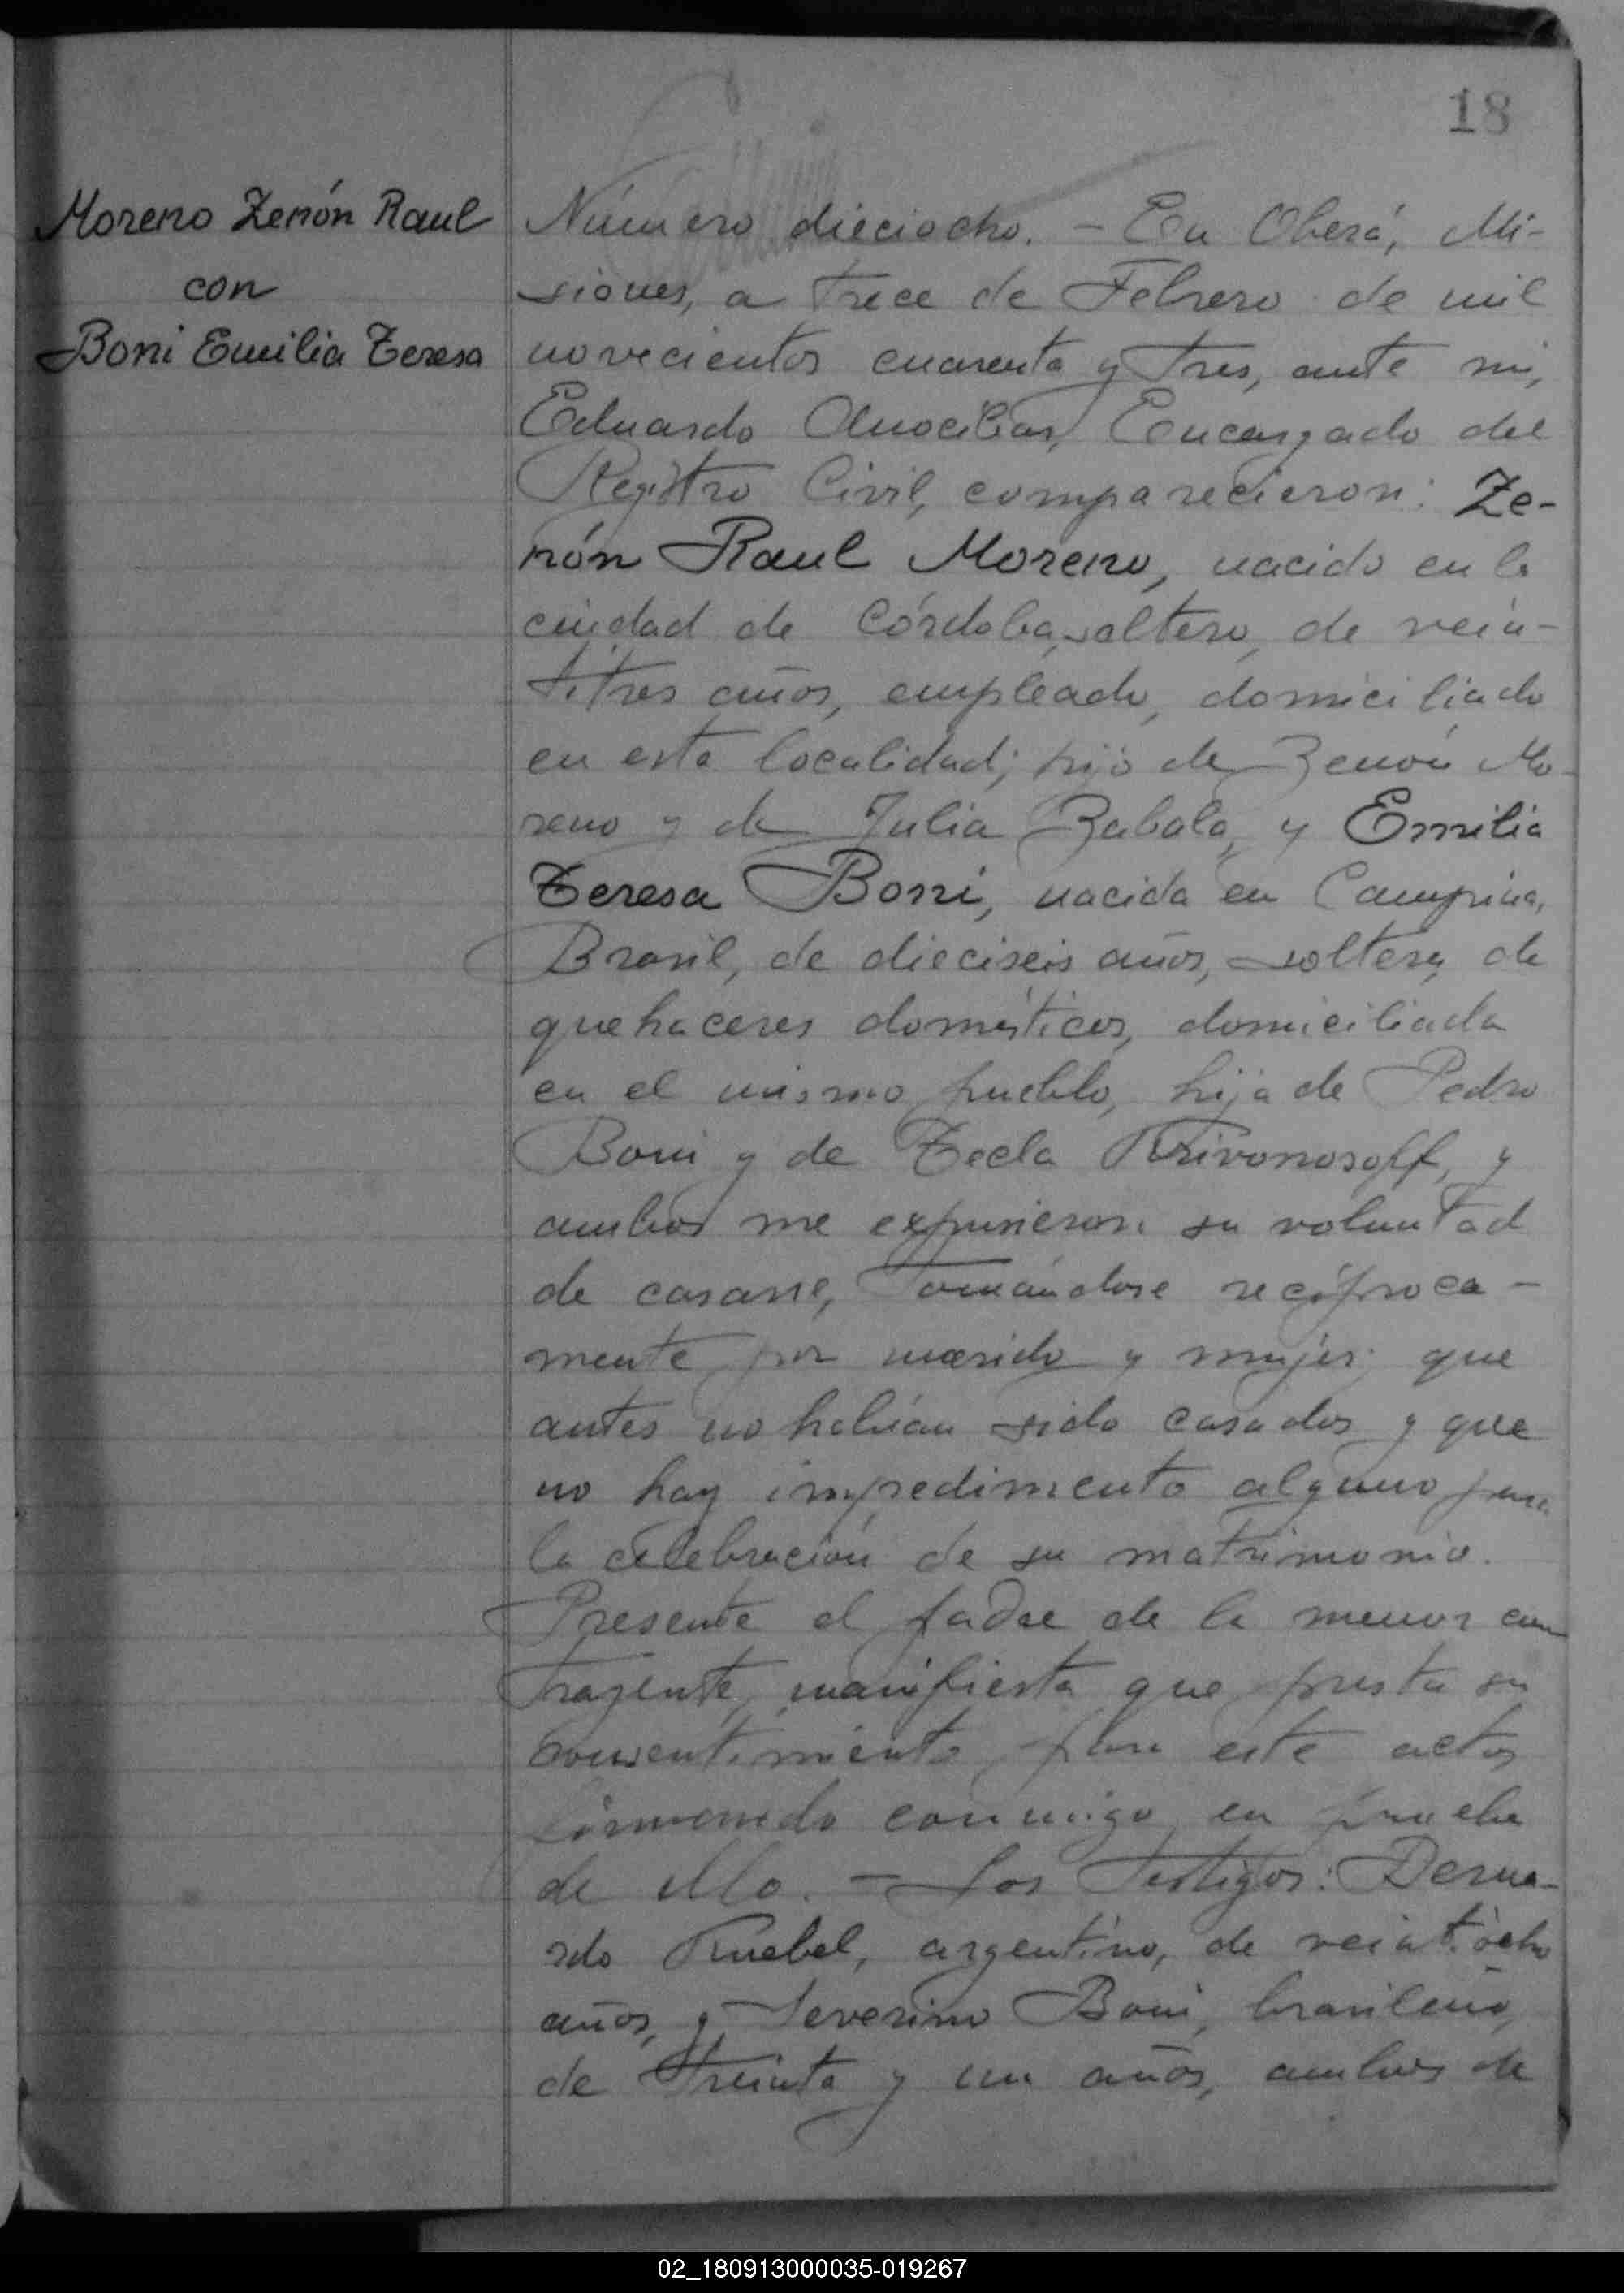 18
Moreno Zenón Raul
con
Boni Emilia Teresa
Número dieciocho. - En Oberá, Mi-
siones, a trece de Febrero de mil
novecientos cuarenta y tres, ante mi,
Eduardo Encargado del
Registro Civil, comparecieron: Ze-
nón Raul Moreno, nacido en la
ciudad de Córdoba, soltero, de vein-
titres años, empleado, domiciliado
en esta localidad; hijo de Zenón Mo-
reno y de Julia Zabala, y Emilia
Teresa Boni, nacida en Campina,
Brasil, de dieciseis años, soltera, de
quehaceres domésticos, domiciliada
en el mismo pueblo, hija de Pedro
Boni y de Tecla Krivonosoff, y
ambos me expusieron su voluntad
de casarse, tomándose recíproca-
mente por marido y mujer; que
antes no habían sido casados y que
no hay impedimento alguno para
la celebración de su matrimonio.
Presente el padre de la menor con
trayente, manifiesta que presta su
consentimiento para este acto,
firmando conmigo en prueba
de ello. - Los testigos: Berna-
rdo Knebel, argentino, de veintiocho
años, y Severino Boni, brasileño,
de treinta y un años, ambos de
02_180913000035-019267